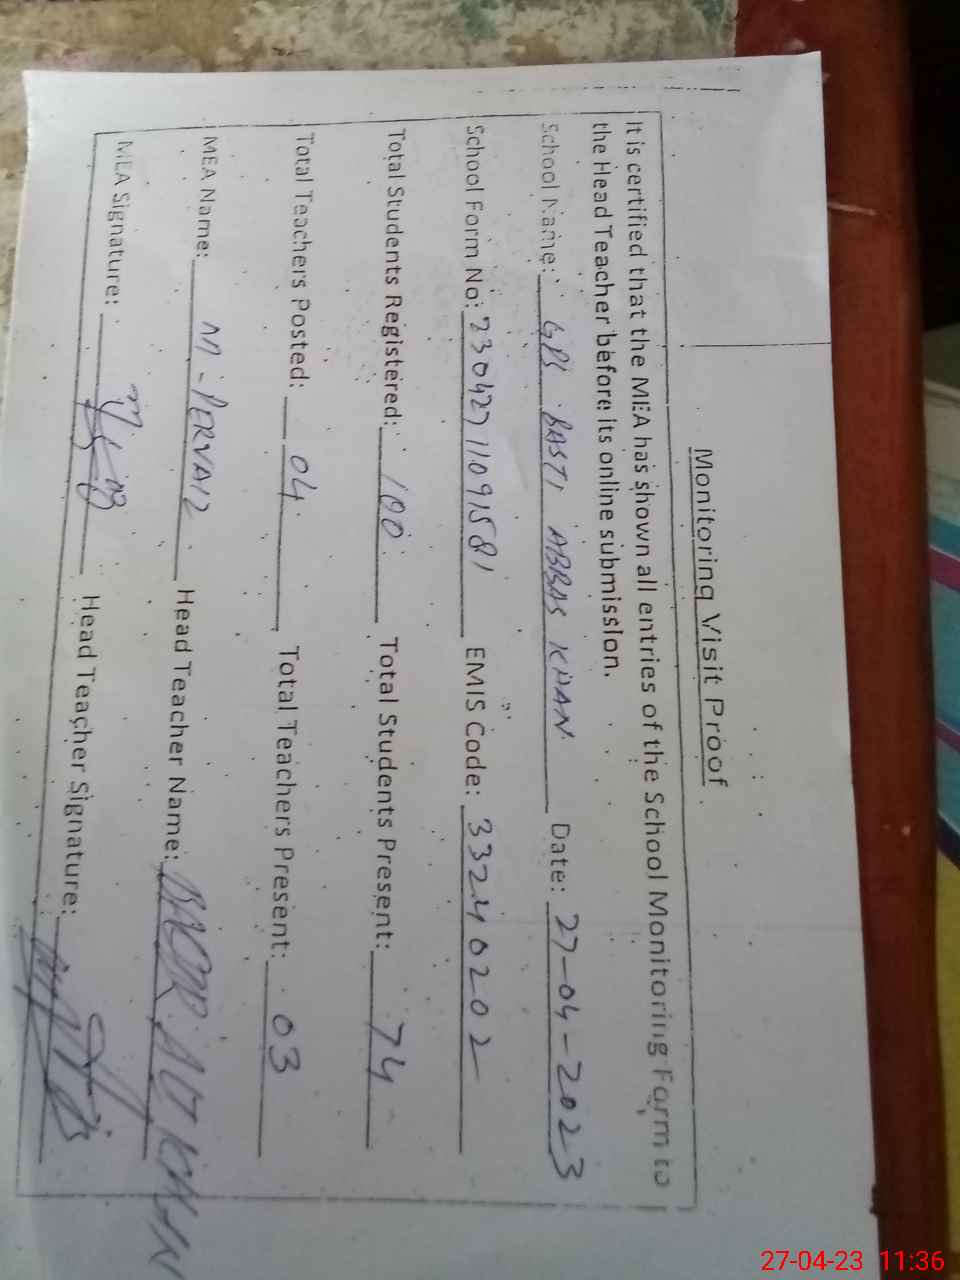 Monitoring Visit Proof
It is certified that the MEA has shown all entries of the School Monitoring Form to
the Head Teacher before its online submission.
School Name: GPS BASTI ABBAS KHAN Date: 27-04-2023
School Form No: 23042711091581 EMIS Code: 33240202
Total Students Registered: 100 Total Students Present: 74
Total Teachers Posted: 04 Total Teachers Present: 03
MEA Name: M-PERVAIZ Head Teacher Name: KHAN
MEA Signature: Head Teacher Signature:
27-04-23 11:36